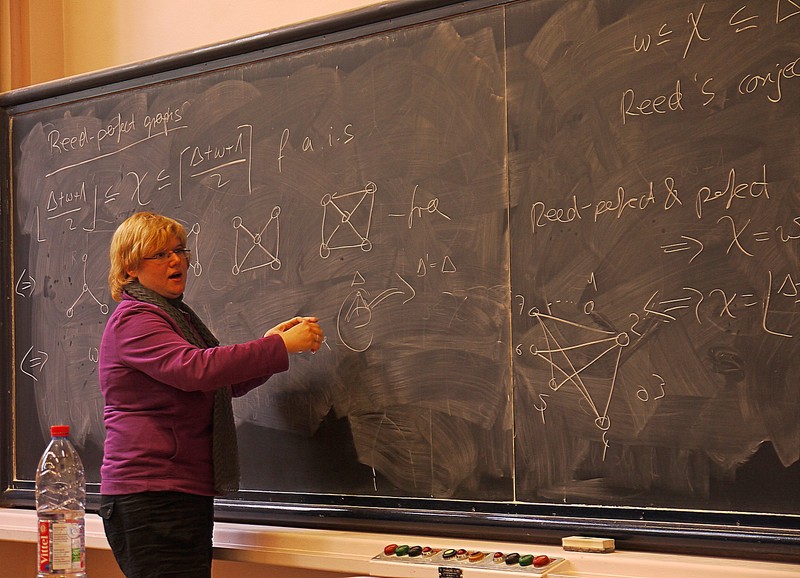 Reed-perfect graphs
⌊(Δ+ω+1)/2⌋ ≤ χ ≤ ⌈(Δ+ω+1)/2⌉ f a.i.s
⇔
Δ
Δ'=Δ
⇔ ω
ω ≤ χ ≤ Δ
Reed's conje
Reed-perfect & perfect
⇒ χ = ω
⇔ χ = ⌊Δ
1
7
2
6
3
5
Vittel